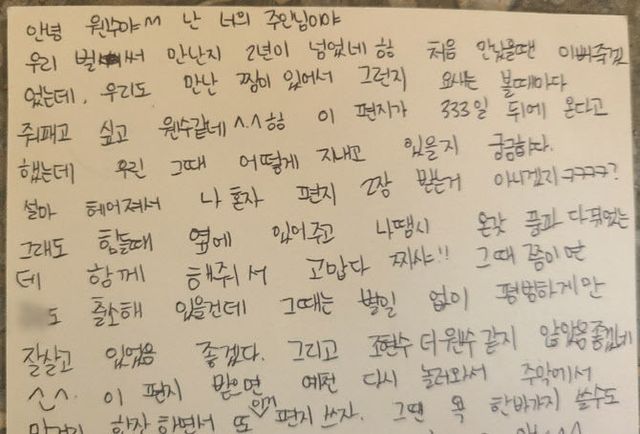 안녕 원수야^^ 난 너의 주인님이야
우리 벌써 만난지 2년이 넘었네 ㅎㅎ 처음 만났을땐 이뻐죽겠
었는데, 우리도 만난 짬이 있어서 그런지 요새는 볼때마다
줘패고 싶고 원수같네^.^ㅎㅎ 이 편지가 333일 뒤에 온다고
했는데 우린 그때 어떻게 지내고 있을지 궁금하다.
설마 헤어져서 나 혼자 편지 2장 받는거 아니겠지ㅋㅋㅋㅋ?
그래도 힘들때 옆에 있어주고 나땜시 온갖 풍파 다 겪었는
데 함께 해줘서 고맙다 짜샤!! 그때 쯤이면
도 출소해 있을건데 그때는 별일 없이 평범하게만
잘살고 있었음 좋겠다. 그리고 조현수 더 원수 같지 않았음좋겠네
^.^. 이 편지 받으면 예천 다시 놀러와서 주막에서
한잔 하면서 또 편지 쓰자. 그땐 욕 한바가지 쓸수도